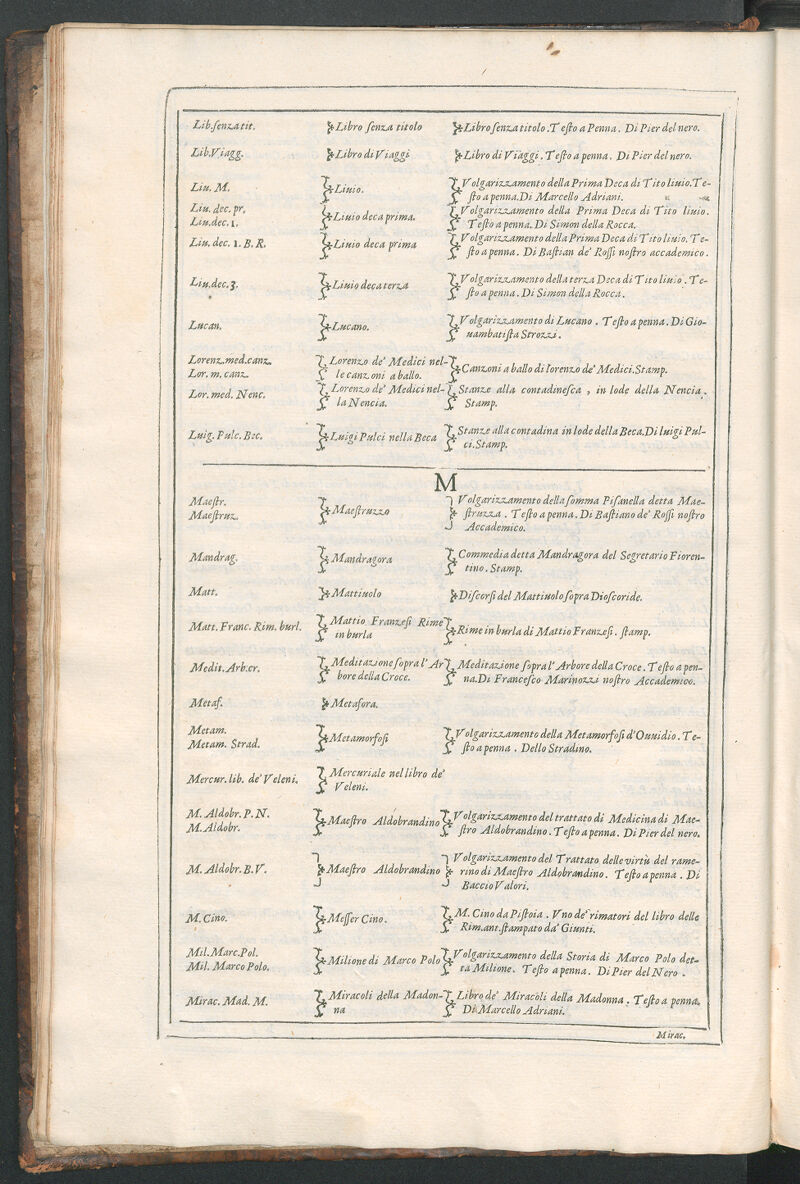 Lib.ſenza tit. Libro ſenza titolo Libro ſenza titolo. Teſto a Penna. Di Pier del nero.
Lib.Viagg. Libro di Viaggi Libro di Viaggi. Teſto a penna. Di Pier del nero.
Liu. M. Liuio. Volgarizzamento della Prima Deca di Tito liuio. Te-
ſto a penna. Di Marcello Adriani.
Liu. dec. pr. Liuio deca prima. Volgarizzamento della Prima Deca di Tito liuio.
Liu.dec. 1. Teſto a penna. Di Simon della Rocca.
Liu. dec. 1. B. R. Liuio deca prima Volgarizzamento della Prima Deca di Tito liuio. Te-
ſto a penna. Di Baſtian de' Roſſi noſtro accademico.
Liu.dec.3. Liuio deca terza Volgarizzamento della terza Deca di Tito liuio. Te-
ſto a penna. Di Simon della Rocca.
Lucan. Lucano. Volgarizzamento di Lucano. Teſto a penna. Di Gio-
uambatiſta Strozzi.
Lorenz.med.canz. Lorenzo de' Medici nel- Canzoni a ballo di lorenzo de' Medici.Stamp.
Lor. m. canz. le canzoni a ballo.
Lor. med. Nenc. Lorenzo de' Medici nel- Stanze alla contadineſca, in lode della Nencia.
la Nencia. Stamp.
Luig. Pulc. Bec. Luigi Pulci nella Beca Stanze alla contadina in lode della Beca.Di luigi Pul-
ci.Stamp.
M
Maeſtr. Maeſtruzzo Volgarizzamento della ſomma Piſanella detta Mae-
Maeſtruz. ſtruzza. Teſto a penna. Di Baſtiano de' Roſſi noſtro
Accademico.
Mandrag. Mandragora Commedia detta Mandragora del Segretario Fioren-
tino. Stamp.
Matt. Mattiuolo Diſcorſi del Mattiuolo ſopra Dioſcoride.
Matt. Franc. Rim. burl. Mattio Franzeſi Rime in burla Rime in burla di Mattio Franzeſi. ſtamp.
Medit. Arb.cr. Meditazione ſopra l' Ar Meditazione ſopra l' Arbore della Croce. Teſto a pen-
bore della Croce. na.Di Franceſco Marinozzi noſtro Accademico.
Metaf. Metafora.
Metam. Metamorfoſi Volgarizzamento della Metamorfoſi d'Ouuidio. Te-
Metam. Strad. ſto a penna. Dello Stradino.
Mercur. lib. de' Veleni. Mercuriale nel libro de'
Veleni.
M. Aldobr. P. N. Maeſtro Aldobrandino Volgarizzamento del trattato di Medicina di Mae-
M. Aldobr. ſtro Aldobrandino. Teſto a penna. Di Pier del nero.
M. Aldobr. B. V. Maeſtro Aldobrandino Volgarizzamento del Trattato delle virtù del rame-
rino di Maeſtro Aldobrandino. Teſto a penna. Di
Baccio Valori.
M. Cino. Meſſer Cino. M. Cino da Piſtoia. Vno de' rimatori del libro delle
Rim.ant.ſtampato da' Giunti.
Mil.Marc.Pol. Milione di Marco Polo Volgarizzamento della Storia di Marco Polo det-
Mil. Marco Polo. ta Milione. Teſto a penna. Di Pier del Nero.
Mirac. Mad. M. Miracoli della Madon- Libro de' Miracoli della Madonna. Teſto a penna.
na Di Marcello Adriani.
Mirac.